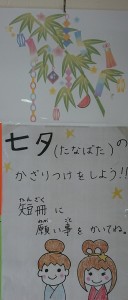 七夕(たなばた)の
かざりつけをしよう!!
短冊に
たんざく
願い事をかいてね。
ねが ごと